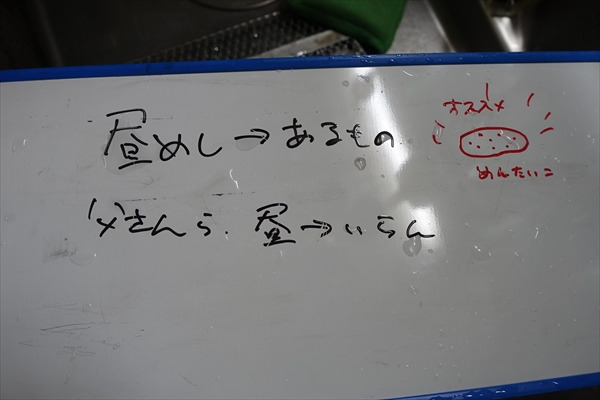 昼めし→あるもの
オススメ
めんたいこ
父さんら、昼→いらん